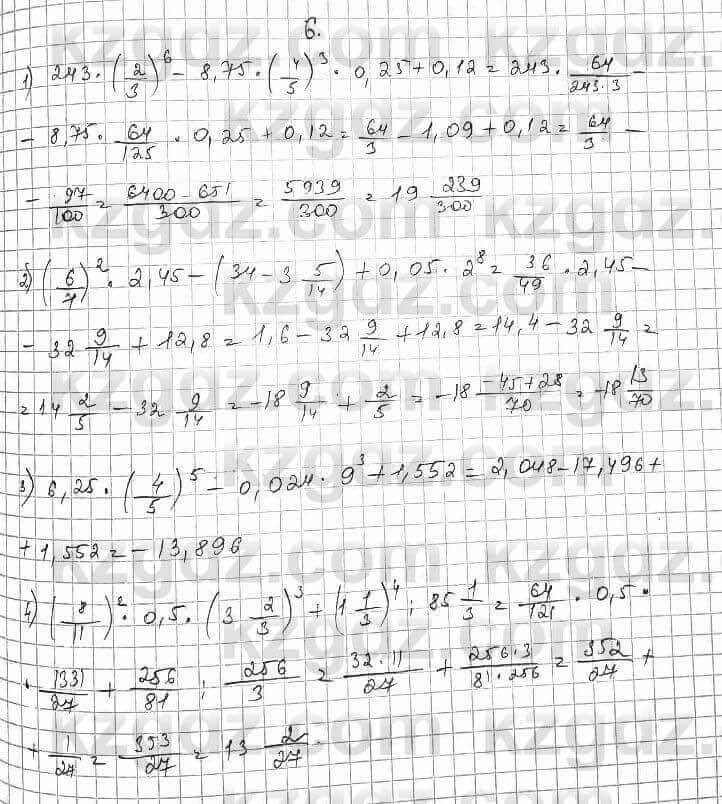 6.
1) 243 · (2/3)^6 - 8,75 · (4/5)^3 · 0,25 + 0,12 = 243 · 64/(243·3) -
- 8,75 · 64/125 · 0,25 + 0,12 = 64/3 - 1,09 + 0,12 = 64/3 -
- 97/100 = (6400 - 651)/300 = 5939/300 = 19 239/300
2) (6/7)^2 · 2,45 - (34 - 3 5/14) + 0,05 · 2^8 = 36/49 · 2,45 -
- 32 9/14 + 12,8 = 1,6 - 32 9/14 + 12,8 = 14,4 - 32 9/14 =
= 14 2/5 - 32 9/14 = -18 9/14 + 2/5 = -18 (-45+28)/70 = -18 13/70
3) 6,25 · (4/5)^5 - 0,024 · 9^3 + 1,552 = 2,048 - 17,496 +
+ 1,552 = - 13,896
4) (8/11)^2 · 0,5 · (3 2/3)^3 + (1 1/3)^4 : 85 1/3 = 64/121 · 0,5 ·
· 1331/27 + 256/81 : 256/3 = (32·11)/27 + (256·3)/(81·256) = 352/27 +
+ 1/27 = 353/27 = 13 2/27.
kzgdz.com